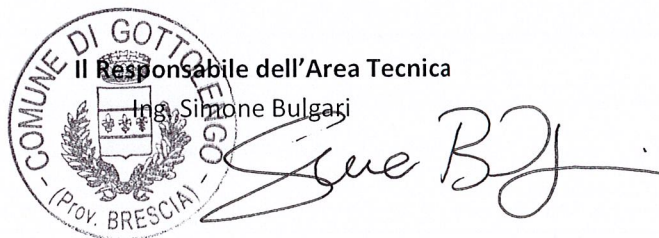 COMUNE DI GOTTOLENGO
(Prov. BRESCIA)
Il Responsabile dell'Area Tecnica
Ing. Simone Bulgari